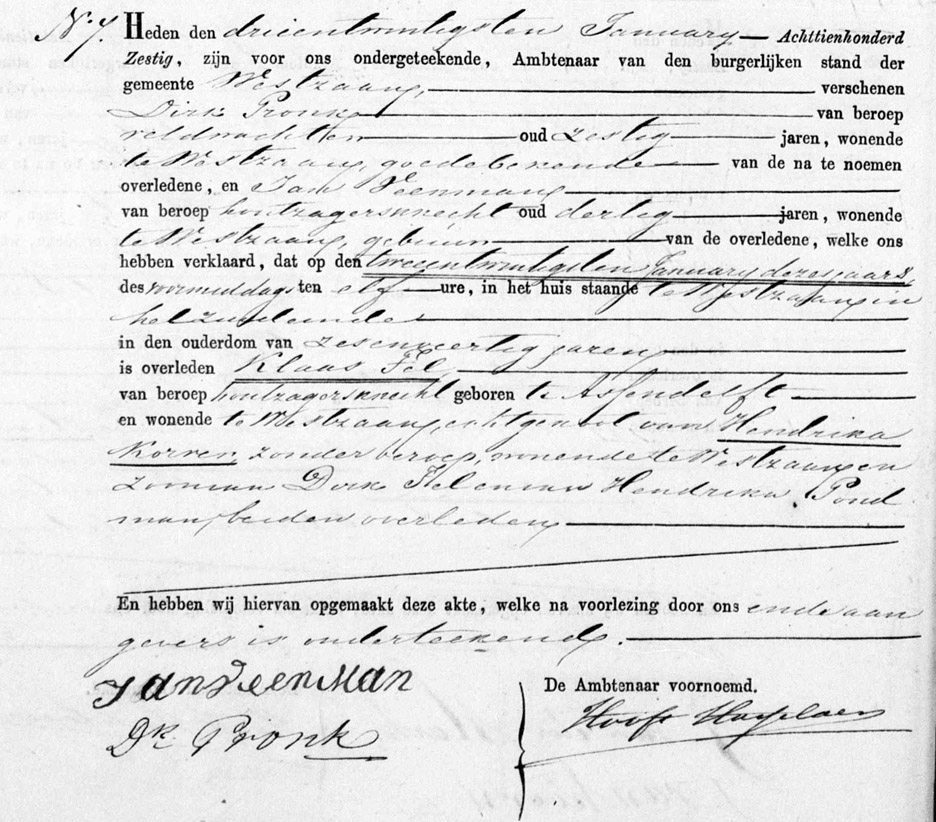 N 7. Heden den drieentwintigsten January — Achttienhonderd
Zestig, zijn voor ons ondergeteekende, Ambtenaar van den burgerlijken stand der
gemeente Westzaan, verschenen
Dirk Pronk van beroep
veldwachter oud zestig jaren, wonende
te Westzaan, goede bekende van de na te noemen
overledene, en Jan Veenman
van beroep houtzagersknecht oud dertig jaren, wonende
te Westzaan, gebuur van de overledene, welke ons
hebben verklaard, dat op den tweeentwintigsten January dezes jaars
des voormiddags ten elf ure, in het huis staande te Westzaan in
het zuideinde
in den ouderdom van zesenveertig jaren
is overleden Klaas Fel,
van beroep houtzagersknecht geboren te Assendelft
en wonende te Westzaan, echtgenoot van Hendrika
Korver, zonder beroep, wonende te Westzaan en
zoon van Dirk Fel en van Hendrika Pond
man, beiden overleden
En hebben wij hiervan opgemaakt deze akte, welke na voorlezing door ons en de aan
gevers is onderteekend.
Jan Veenman
De Ambtenaar voornoemd.
Dk Pronk
Hooft